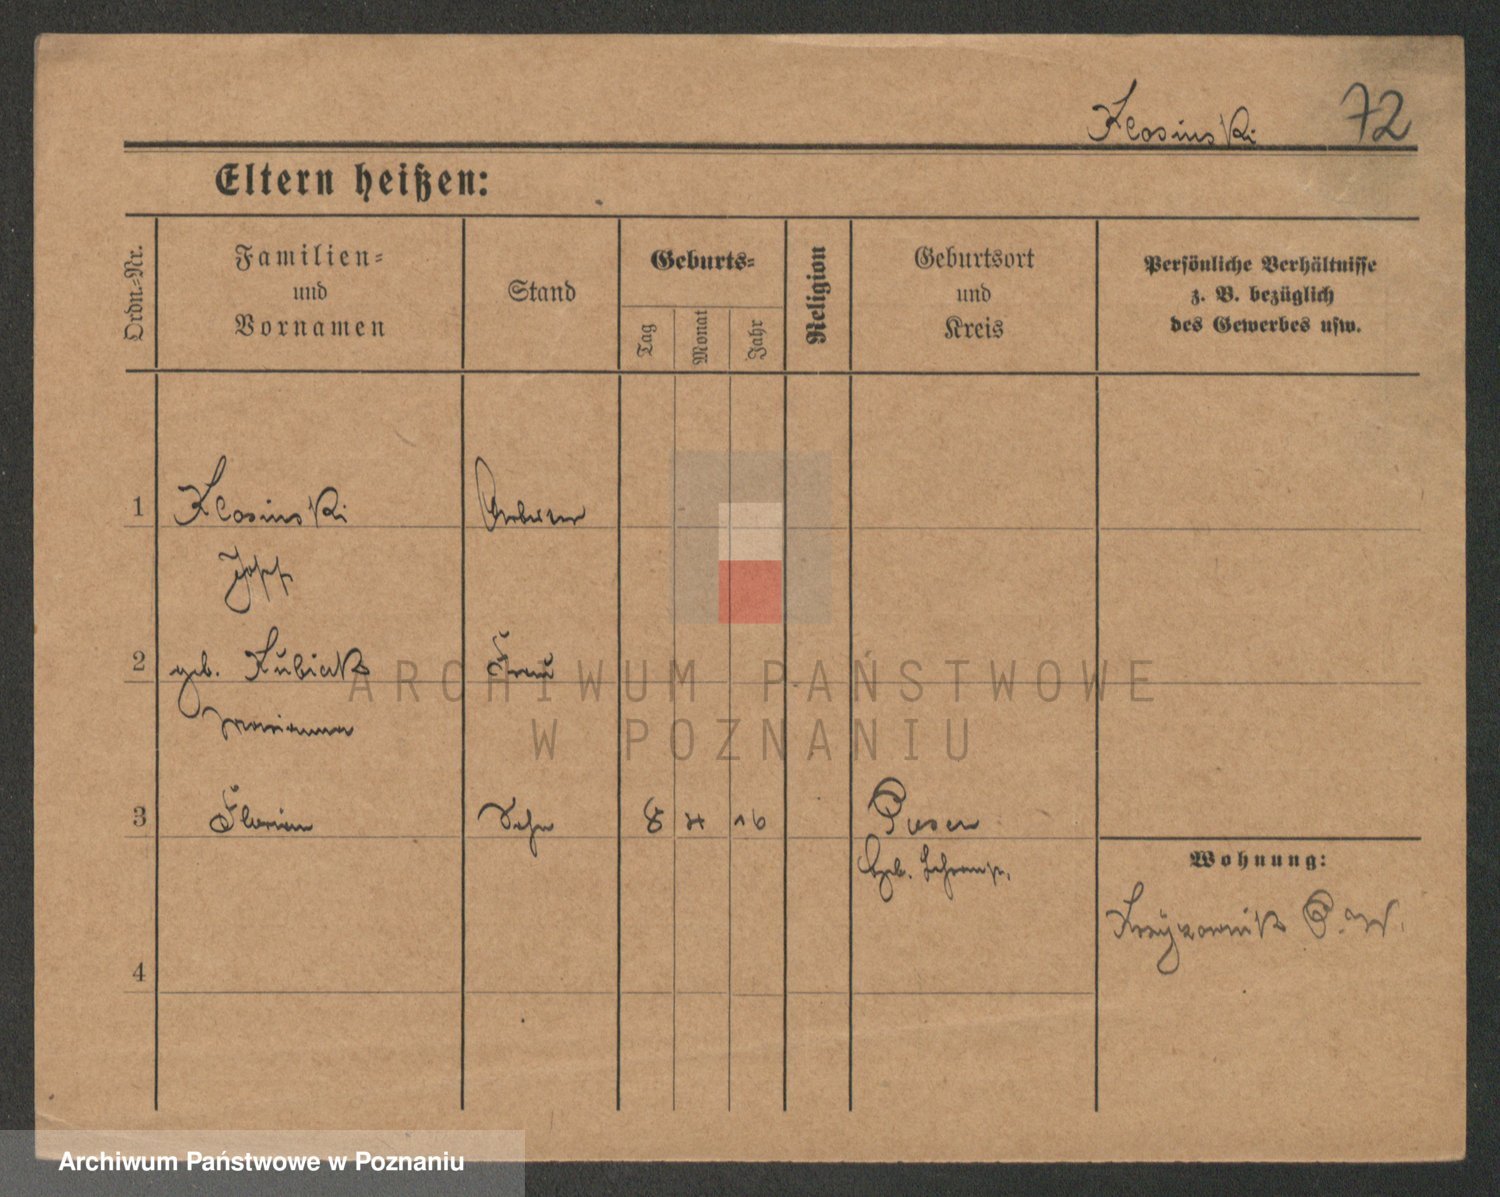 Klosinski 72
Eltern heißen:
Ordn.-Nr.
Familien-
und
Vornamen
Stand
Geburts-
Tag
Monat
Jahr
Religion
Geburtsort
und
Kreis
Persönliche Verhältnisse
z. B. bezüglich
des Gewerbes usw.
1 Klosinski Arbeiter
Josef
2 geb. Kubiak Frau
Marianna
3 Florian Sohn 8 4 16 Posen
geb.
Wohnung:
P. W.
4
ARCHIWUM PAŃSTWOWE
W POZNANIU
Archiwum Państwowe w Poznaniu